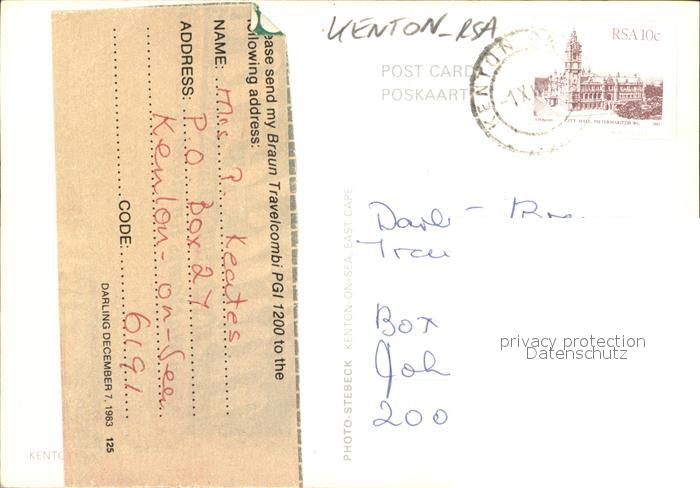 KENTON-RSA
POST CARD
POSKAART
KENTON ON
-1 XII
RSA 10c
CITY HALL, PIETERMARITZBURG
ease send my Braun Travelcombi PGI 1200 to the
following address:
NAME: Mrs P. Keates
ADDRESS: P.O. Box 27
Kenton-on-Sea
CODE: 6191
DARLING DECEMBER 7, 1983 125
PHOTO-STEBECK KENTON-ON-SEA, EAST CAPE
Darl
Box
Joh
200
privacy protection
Datenschutz
KENTO